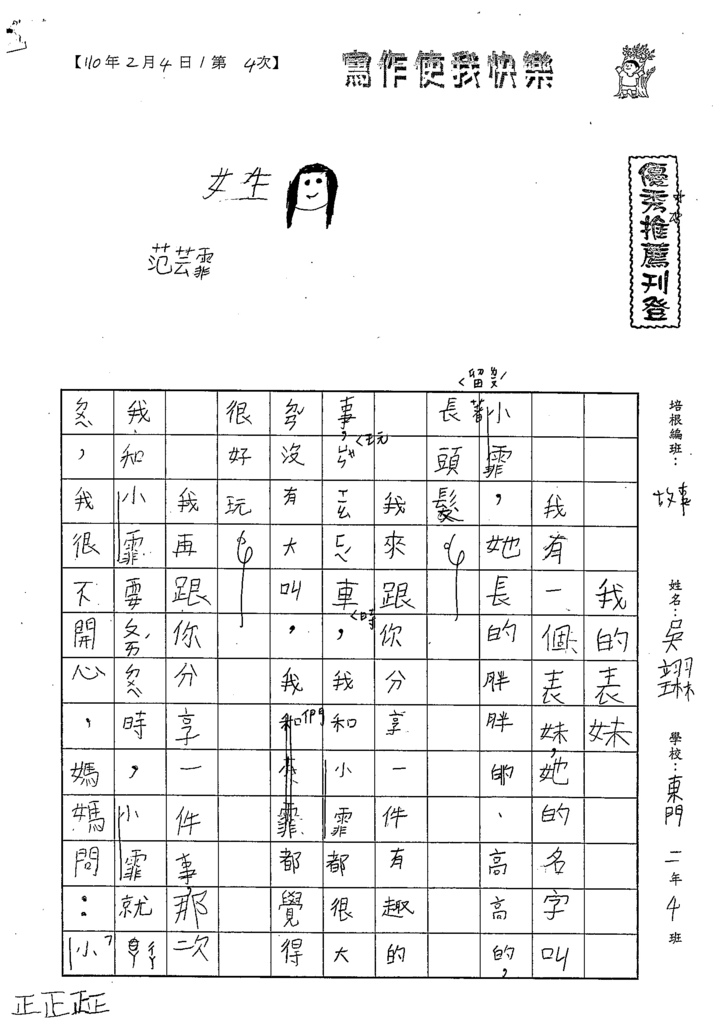 【110年2月4日/第 4次】
寫作使我快樂
優秀推薦刊登
女生
范芸霏
培根編班：故事
姓名：吳翊琳
學校：東門 二年4班
我的表妹
我有一個表妹，她的名字叫
小霏，她長的胖胖的、高高的，
留
著
長頭髮。
我來跟你分享一件有趣的
事，
玩
車，
時
我和小霏都很大
沒有大叫，我們
和
霏都覺得
很好玩。
我再跟你分享一件事，那二次
我知小霏要
時，小霏就
，我很不開心，媽媽問：「小
正正正正